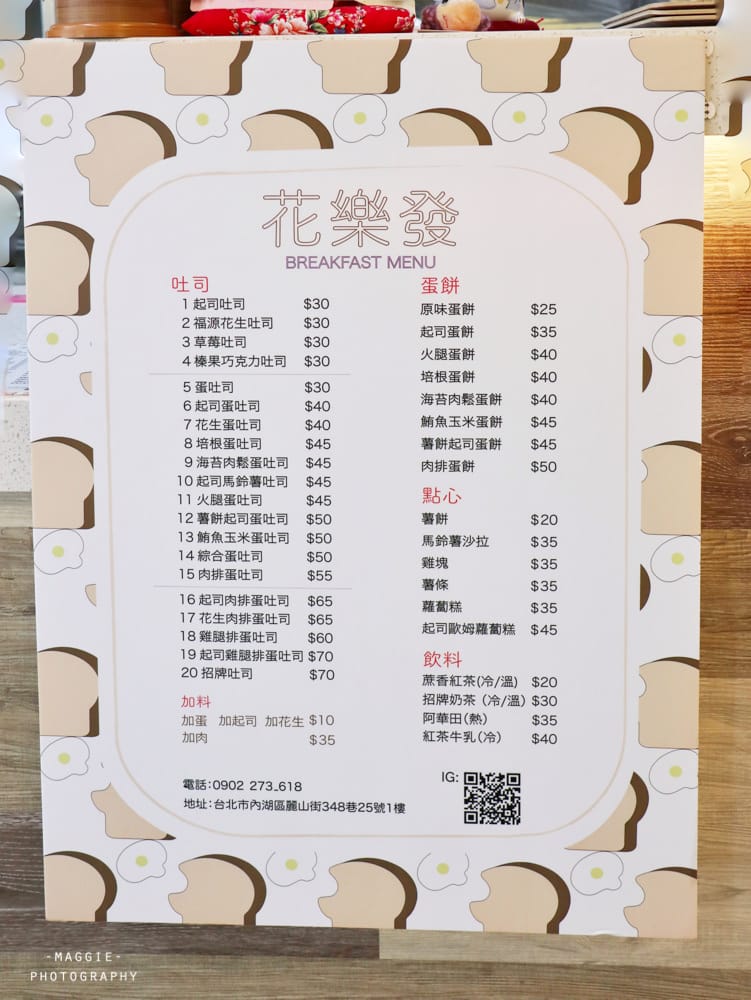 花樂發
BREAKFAST MENU
吐司
1 起司吐司 $30
2 福源花生吐司 $30
3 草莓吐司 $30
4 榛果巧克力吐司 $30
5 蛋吐司 $30
6 起司蛋吐司 $40
7 花生蛋吐司 $40
8 培根蛋吐司 $45
9 海苔肉鬆蛋吐司 $45
10 起司馬鈴薯吐司 $45
11 火腿蛋吐司 $45
12 薯餅起司蛋吐司 $50
13 鮪魚玉米蛋吐司 $50
14 綜合蛋吐司 $50
15 肉排蛋吐司 $55
16 起司肉排蛋吐司 $65
17 花生肉排蛋吐司 $65
18 雞腿排蛋吐司 $60
19 起司雞腿排蛋吐司 $70
20 招牌吐司 $70
加料
加蛋 加起司 加花生 $10
加肉 $35
蛋餅
原味蛋餅 $25
起司蛋餅 $35
火腿蛋餅 $40
培根蛋餅 $40
海苔肉鬆蛋餅 $40
鮪魚玉米蛋餅 $45
薯餅起司蛋餅 $45
肉排蛋餅 $50
點心
薯餅 $20
馬鈴薯沙拉 $35
雞塊 $35
薯條 $35
蘿蔔糕 $35
起司歐姆蘿蔔糕 $45
飲料
蔗香紅茶(冷/溫) $20
招牌奶茶(冷/溫) $30
阿華田(熱) $35
紅茶牛乳(冷) $40
電話:0902 273_618
地址:台北市內湖區麗山街348巷25號1樓
IG:
-MAGGIE-
PHOTOGRAPHY